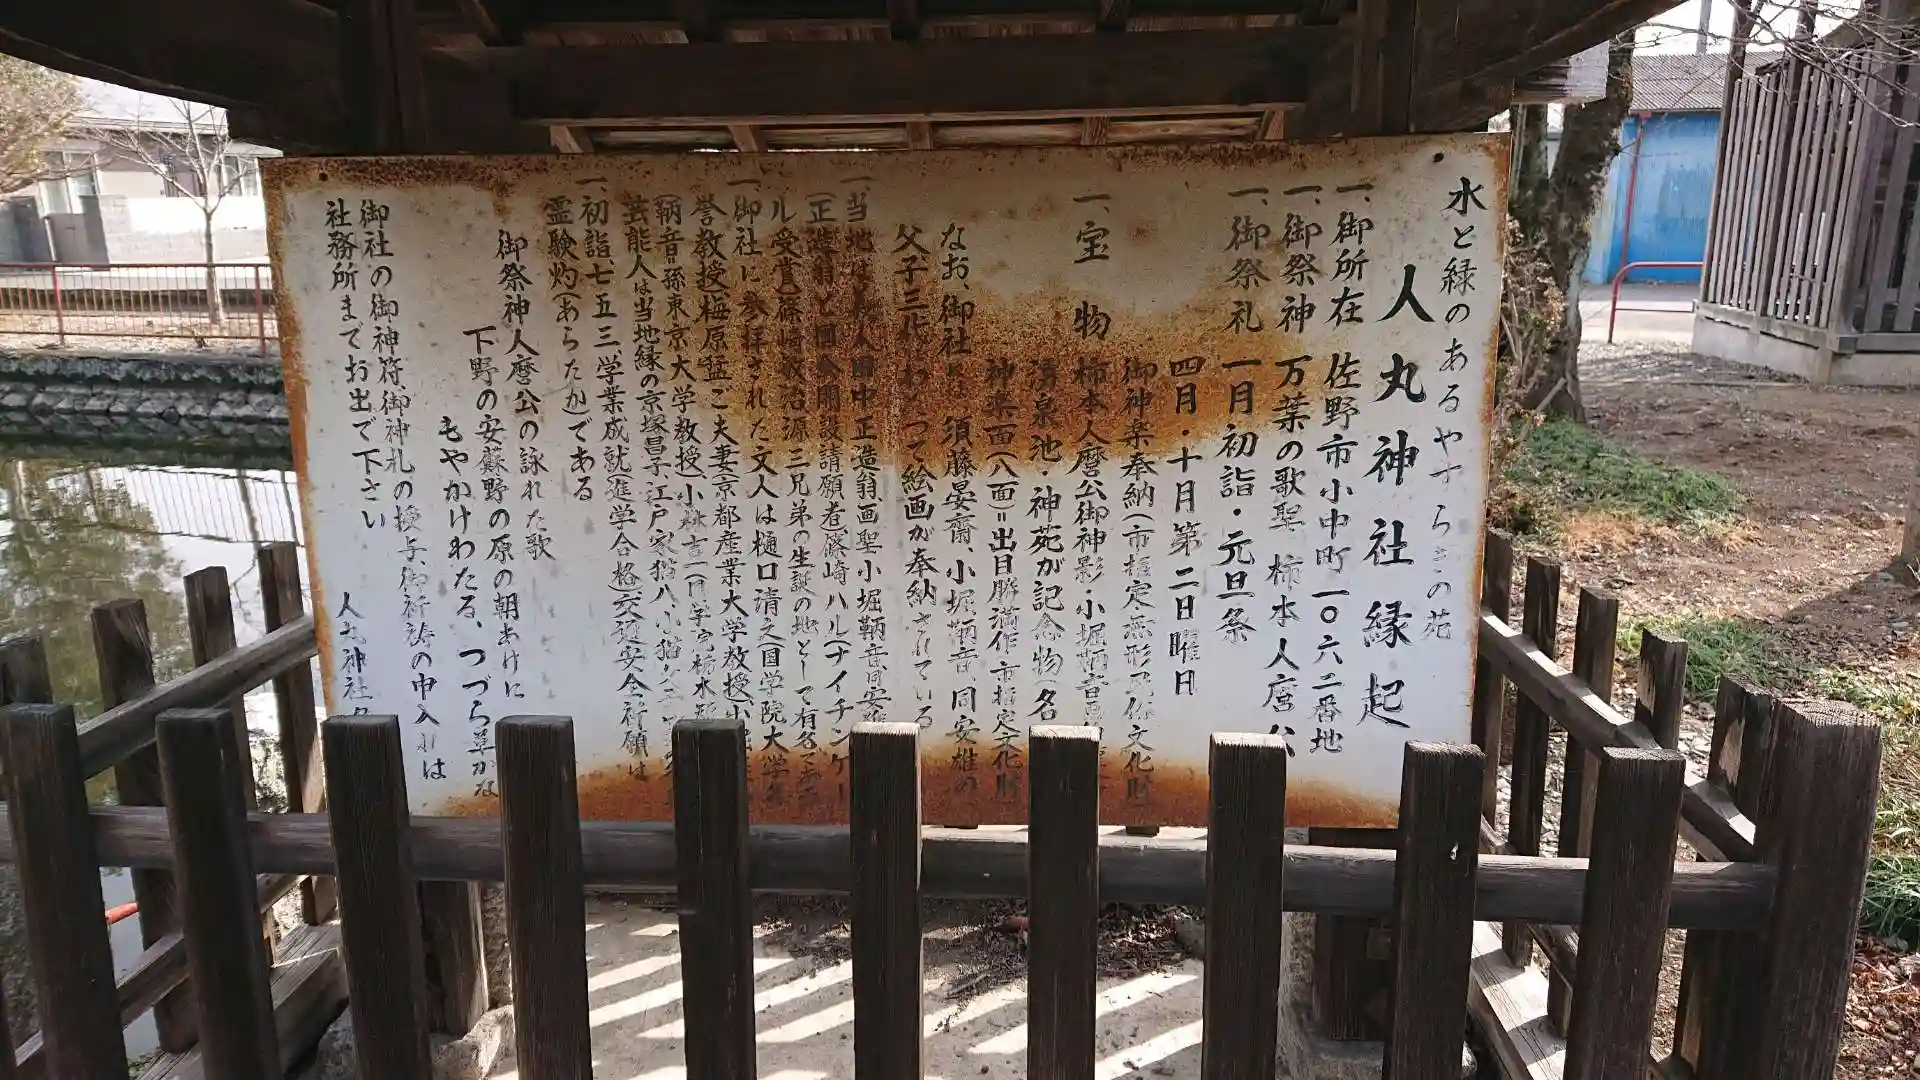 水と緑のあるやすらぎの苑
人丸神社縁起
一、御所在 佐野市小中町一〇六二番地
一、御祭神 万葉の歌聖 柿本人麿公
一、御祭礼 一月初詣・元旦祭
四月・十月第二日曜日
御神楽奉納(市指定無形民俗文化財
一、宝物 柿本人麿公御神影・小堀鞆音
湧泉池・神苑が記念物名
神楽面(八面)=出目勝満作 市指定文化財
なお、御社 須藤晏齋、小堀鞆音、同安雄の
父子三代 って絵画が奉納されている
一、当地は 人田中正造翁、画聖小堀鞆音、同安雄
(正造翁と国会開設請願者)篠崎ハル(ナイチンゲー
ル受賞)篠崎 源三兄弟の生誕の地として有名である
一、御社に参拝された文人は樋口清之(国学院大学名
誉教授)梅原猛ご夫妻(京都産業大学教授)小堀
(鞆音=孫東京大学教授)
芸能人は当地縁の京塚昌子、江戸家猫八、小猫
一、初詣七五三、学業成就(進学合格)交通安全祈願は
霊験灼(あらたか)である
御祭神人麿公の詠れた歌
下野の安蘇野の原の朝あけに
もやかけわたる、つづら草かな
御社の御神符、御神札の授与、御祈祷の申入れは
社務所までお出で下さい
人丸神社